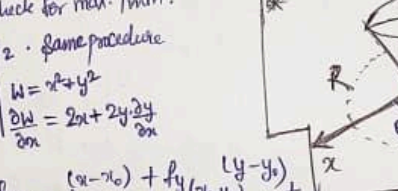 check for max.
2. Same procedure
W = x² + y²
∂W/∂x = 2x + 2y.∂y/∂x
(x-x₀) + fy (y-y₀)
R
x